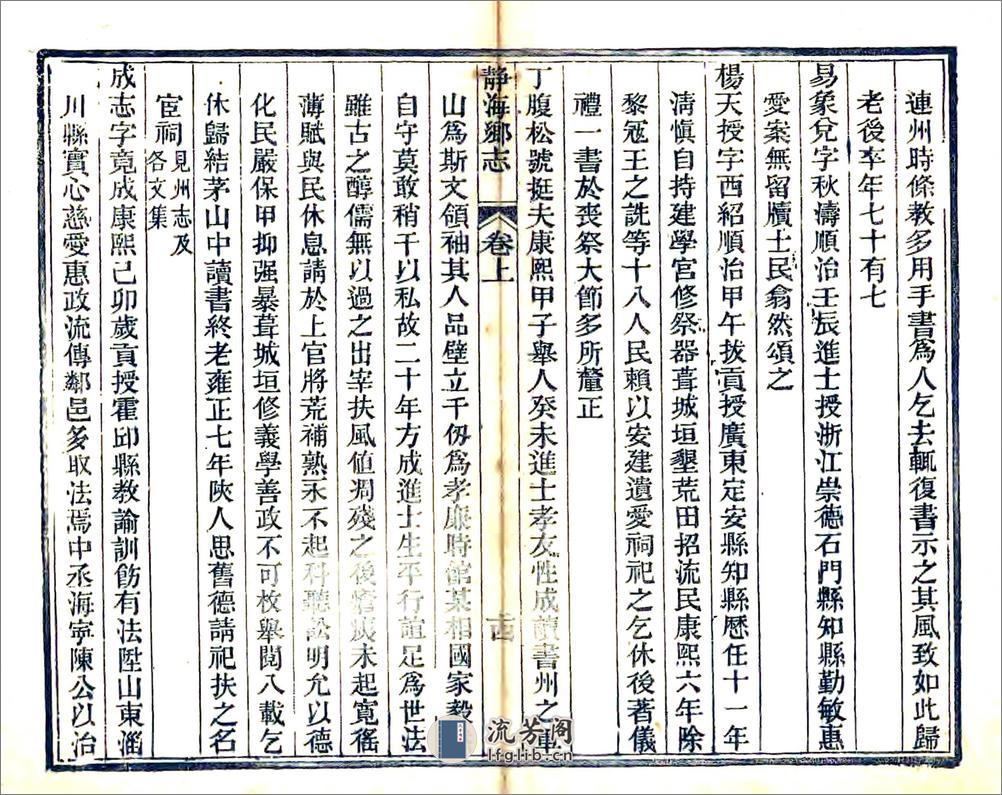 連州時條教多用手書爲人乞去輒復書示之其風致如此歸
老後卒年七十有七
易象兌字秋濤順治壬辰進士授浙江崇德石門縣知縣勤敏惠
愛案無留牘士民翕然頌之
楊天授字西紹順治甲午拔貢授廣東定安縣知縣歷任十一年
淸愼自持建學宮修祭器葺城垣墾荒田招流民康熙六年除
黎寇王之詵等十八人民賴以安建遺愛祠祀之乞休後著儀
禮一書於喪祭大節多所釐正
丁腹松號挺夫康熙甲子舉人癸未進士孝友性成讀書州之軍
靜海鄉志
卷上
十四
山爲斯文領袖其人品壁立千仞爲孝廉時館某相國家毅
自守莫敢稍干以私故二十年方成進士生平行誼足爲世法
雖古之醇儒無以過之出宰扶風值凋殘之後瘡痍未起寬徭
薄賦與民休息請於上官將荒補熟永不起科聽訟明允以德
化民嚴保甲抑强暴葺城垣修義學善政不可枚舉閱八載乞
休歸結茅山中讀書終老雍正七年陝人思舊德請祀扶之名
宦祠見州志及
各文集
成志字竟成康熙己卯歲貢授霍邱縣教諭訓飭有法陞山東淄
川縣實心慈愛惠政流傳鄰邑多取法焉中丞海寧陳公以治
流芳阁
lfglib.cn